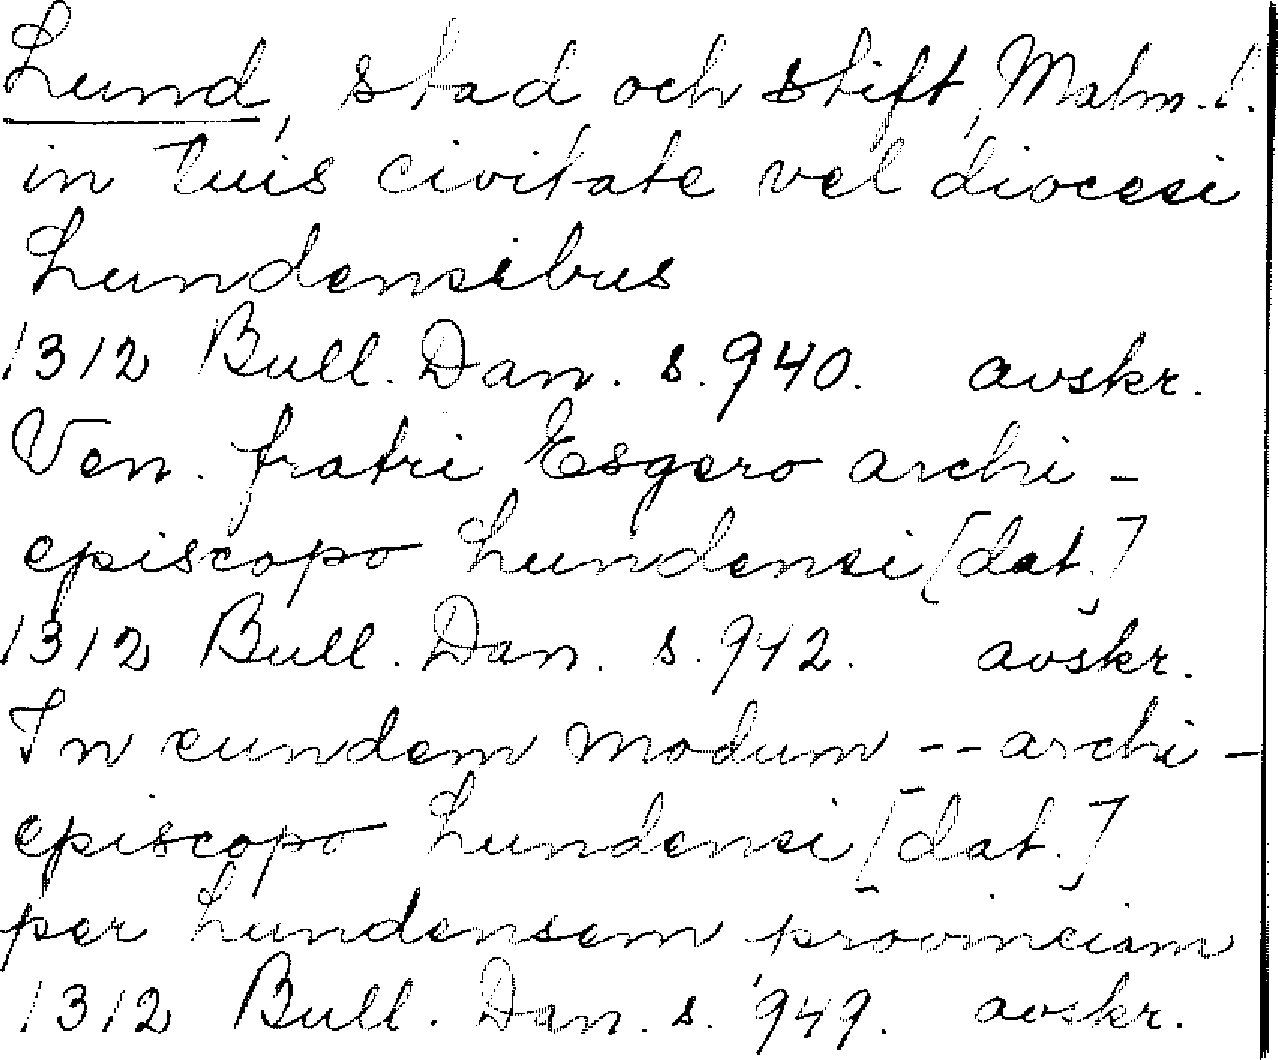 Lund, stad och stift, Malm. l.
in tuis civitate vel diocesi
Lundensibus
1312 Bull. Dan. s. 940. avskr.
Ven. fratri Esgero archi-
episcopo Lundensi [dat.]
1312 Bull. Dan. s. 942. avskr.
In eundem modum -- archi-
episcopo Lundensi [dat.]
per Lundensem provinciam
1312 Bull. Dan. s. 949. avskr.